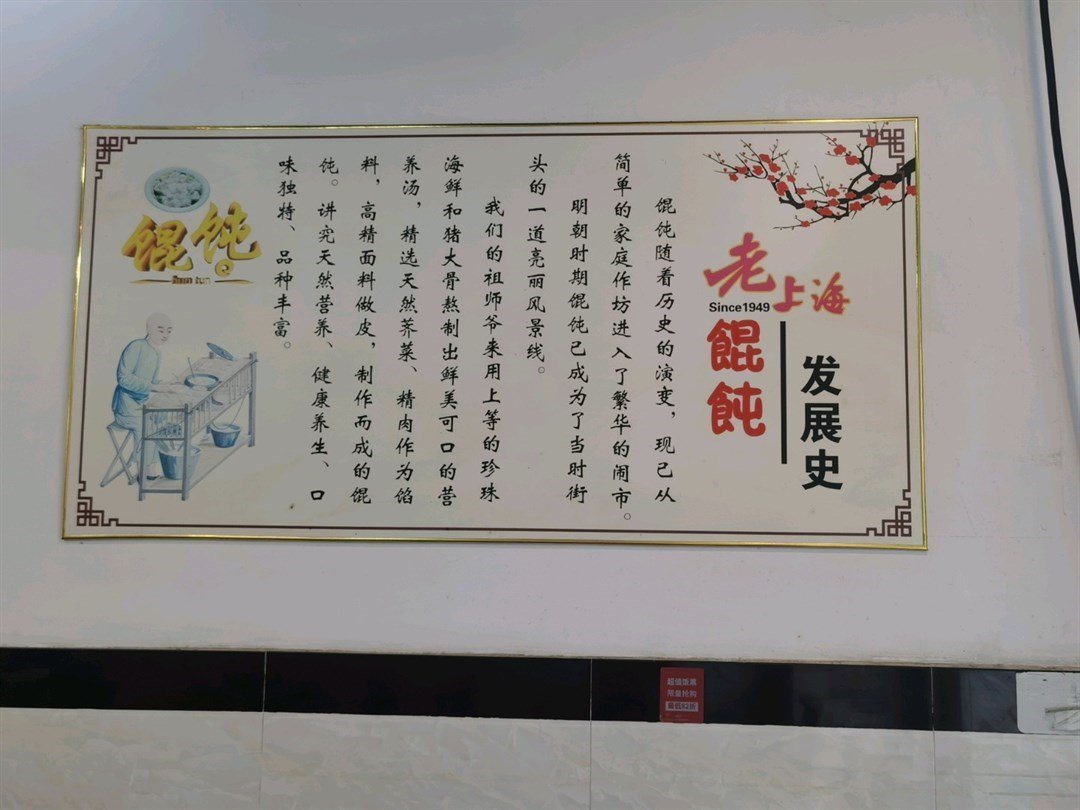 老上海
Since1949
餛飩
发展史
馄饨随着历史的演变，现已从
简单的家庭作坊进入了繁华的闹市。
明朝时期馄饨已成为了当时街
头的一道亮丽风景线。
我们的祖师爷来用上等的珍珠
海鲜和猪大骨熬制出鲜美可口的营
养汤，精选天然荠菜、精肉作为馅
料，高精面料做皮，制作而成的馄
饨。讲究天然营养、健康养生、口
味独特、品种丰富。
馄饨
超值饭票
限量抢购
最低82折